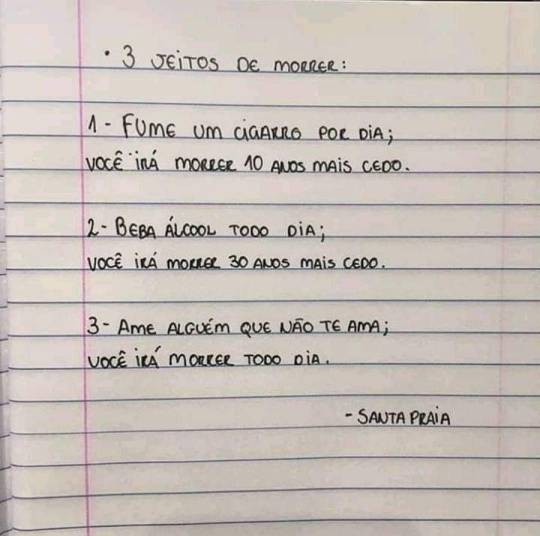 • 3 JEITOS DE MORRER:
1 - FUME UM CIGARRO POR DIA;
VOCÊ IRÁ MORRER 10 ANOS MAIS CEDO.
2 - BEBA ÁLCOOL TODO DIA;
VOCÊ IRÁ MORRER 30 ANOS MAIS CEDO.
3 - AME ALGUÉM QUE NÃO TE AMA;
VOCÊ IRÁ MORRER TODO DIA.
- SANTA PRAIA